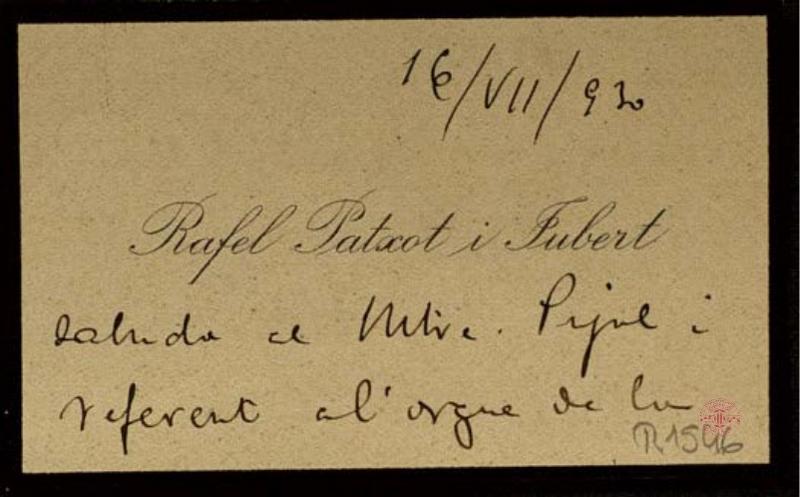 16/VII/930
Rafel Patxot i Jubert
saluda al Mtre. Pujol i
referent a l'orgue de la
R1546